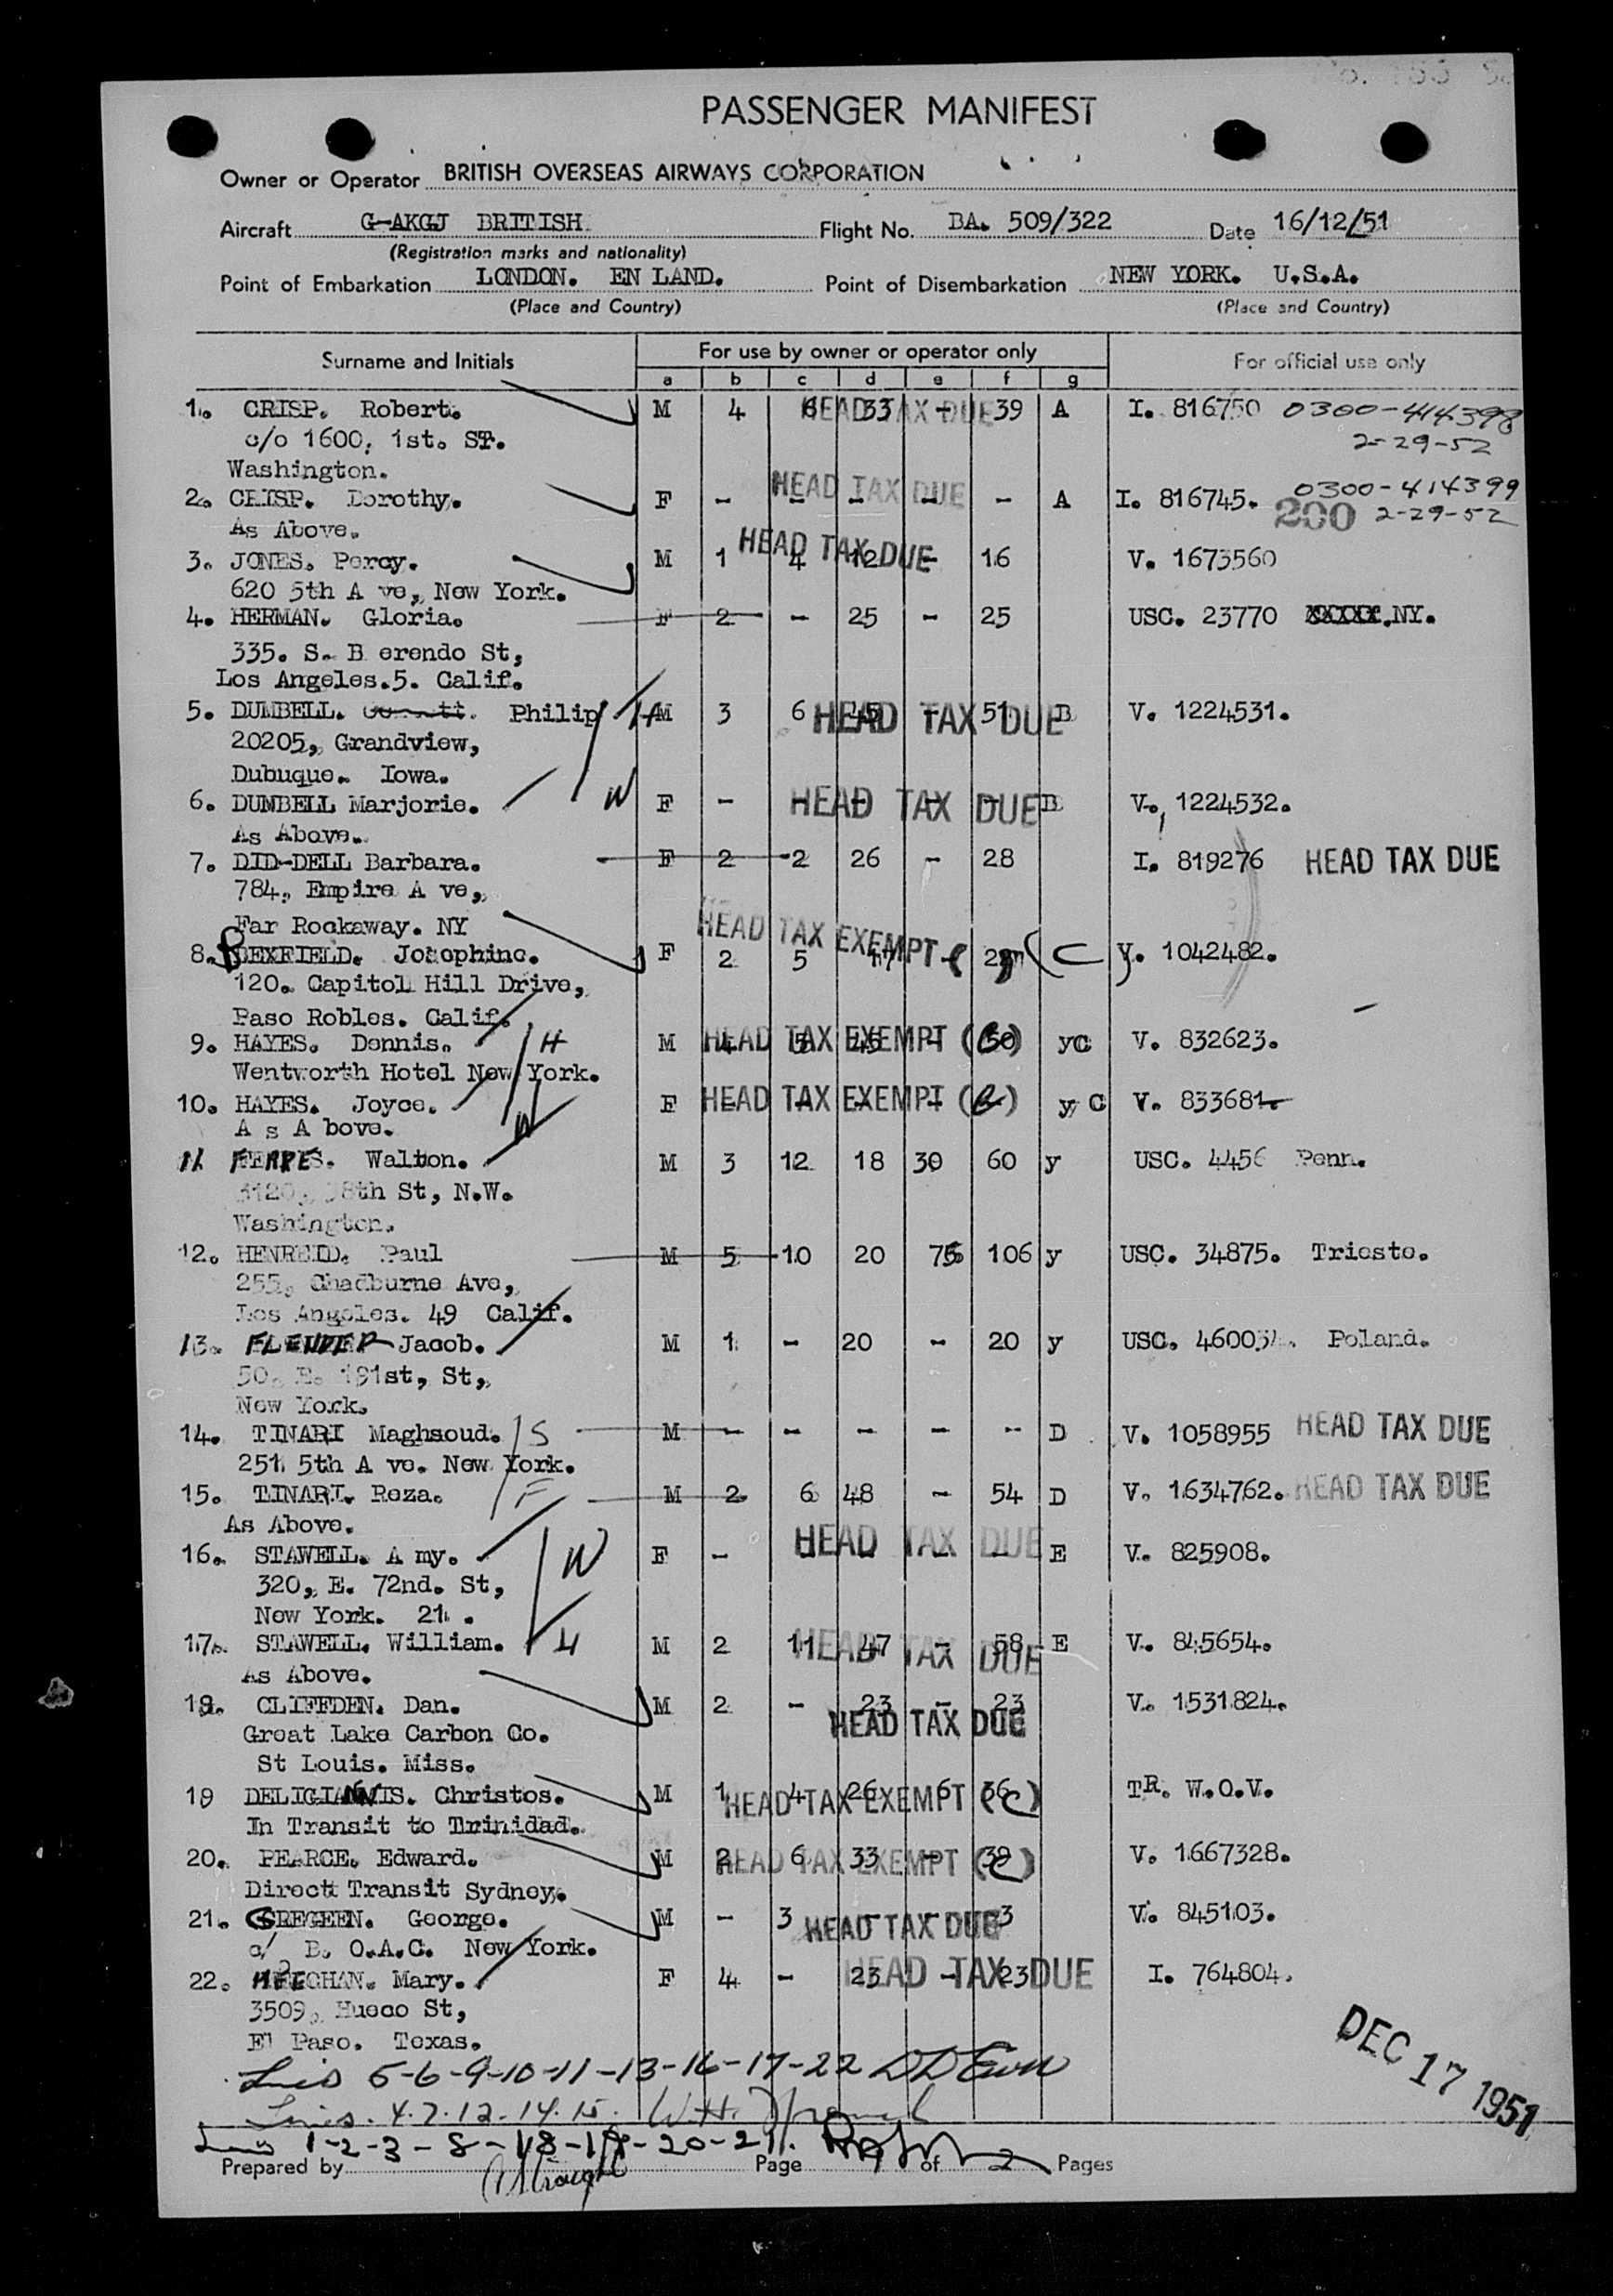 PASSENGER MANIFEST
Owner or Operator BRITISH OVERSEAS AIRWAYS CORPORATION
Aircraft G-AKGJ BRITISH. Flight No. BA. 509/322 Date 16/12/51
(Registration marks and nationality)
Point of Embarkation LONDON. EN LAND. Point of Disembarkation NEW YORK. U.S.A.
(Place and Country) (Place and Country)
Surname and Initials For use by owner or operator only For official use only
a b c d e f g
1. CRISP. Robert. M 4 6 33 - 39 A HEAD TAX DUE I. 816750 0300-414398
c/o 1600, 1st. ST. 2-29-52
Washington.
2. CRISP. Dorothy. F - - - - - A HEAD TAX DUE I. 816745. 0300-414399
As Above. 200 2-29-52
3. JONES. Percy. M 1 4 12 - 16 HEAD TAX DUE V. 1673560
620 5th A ve, New York.
4. HERMAN. Gloria. F 2 - 25 - 25 USC. 23770 XXXXX.NY.
335. S. B erendo St,
Los Angeles.5. Calif.
5. DUMBELL. Philip H M 3 6 45 - 51 B HEAD TAX DUE V. 1224531.
20205, Grandview,
Dubuque. Iowa.
6. DUMBELL Marjorie. W F - - - - - B HEAD TAX DUE V. 1224532.
As Above.
7. DID-DELL Barbara. F 2 2 26 - 28 I. 819276 HEAD TAX DUE
784, Empire A ve,
Far Rockaway. NY
8. BEXFIELD. Josephine. F 2 5 - HEAD TAX EXEMPT (C V. 1042482.
120. Capitol Hill Drive,
Paso Robles. Calif.
9. HAYES. Dennis. H M 4 5 45 - 50 yc HEAD TAX EXEMPT V. 832623.
Wentworth Hotel New York.
10. HAYES. Joyce. W F - - - - - y C HEAD TAX EXEMPT V. 833681.
A s A bove.
11 Walton. M 3 12 18 30 60 y USC. 4456 Penn.
3120, 38th St, N.W.
Washington.
12. HENREID. Paul M 5 10 20 76 106 y USC. 34875. Trieste.
255, Chadburne Ave,
Los Angeles. 49 Calif.
13. FLENDER Jacob. M 1 - 20 - 20 y USC. Poland.
50. E. 191st, St,
New York.
14. TINARI Maghsoud. S M - - - - - D V. 1058955 HEAD TAX DUE
251 5th A ve. New York.
15. TINARI. Reza. F M 2 6 48 - 54 D V. 1634762. HEAD TAX DUE
As Above.
16. STAWELL. A my. W F - - - - - E HEAD TAX DUE V. 825908.
320, E. 72nd. St,
New York. 21 .
17. STAWELL. William. H M 2 11 47 - 58 E HEAD TAX DUE V. 845654.
As Above.
18. CLIFFDEN. Dan. M 2 - 23 - 23 HEAD TAX DUE V. 1531824.
Great Lake Carbon Co.
St Louis. Miss.
19 DELIGIANNIS. Christos. M 1 4 26 6 36 HEAD TAX EXEMPT (C) TR. W.O.V.
In Transit to Trinidad.
20. PEARCE. Edward. M 2 6 33 - 39 HEAD TAX EXEMPT (C) V. 1667328.
Direct Transit Sydney.
21. GREGEEN. George. M - 3 - - 3 HEAD TAX DUE V. 845103.
c/ B. O.A.C. New York.
22. Mary. F 4 - 23 - 23 HEAD TAX DUE I. 764804.
3509, Hueco St,
El Paso. Texas.
5-6-9-10-11-13-16-17-22
DEC 17 1951
Lines. 4.7.12.14.15. W.H.
1-2-3-8-18-19-20-21.
Prepared by Page of 2 Pages